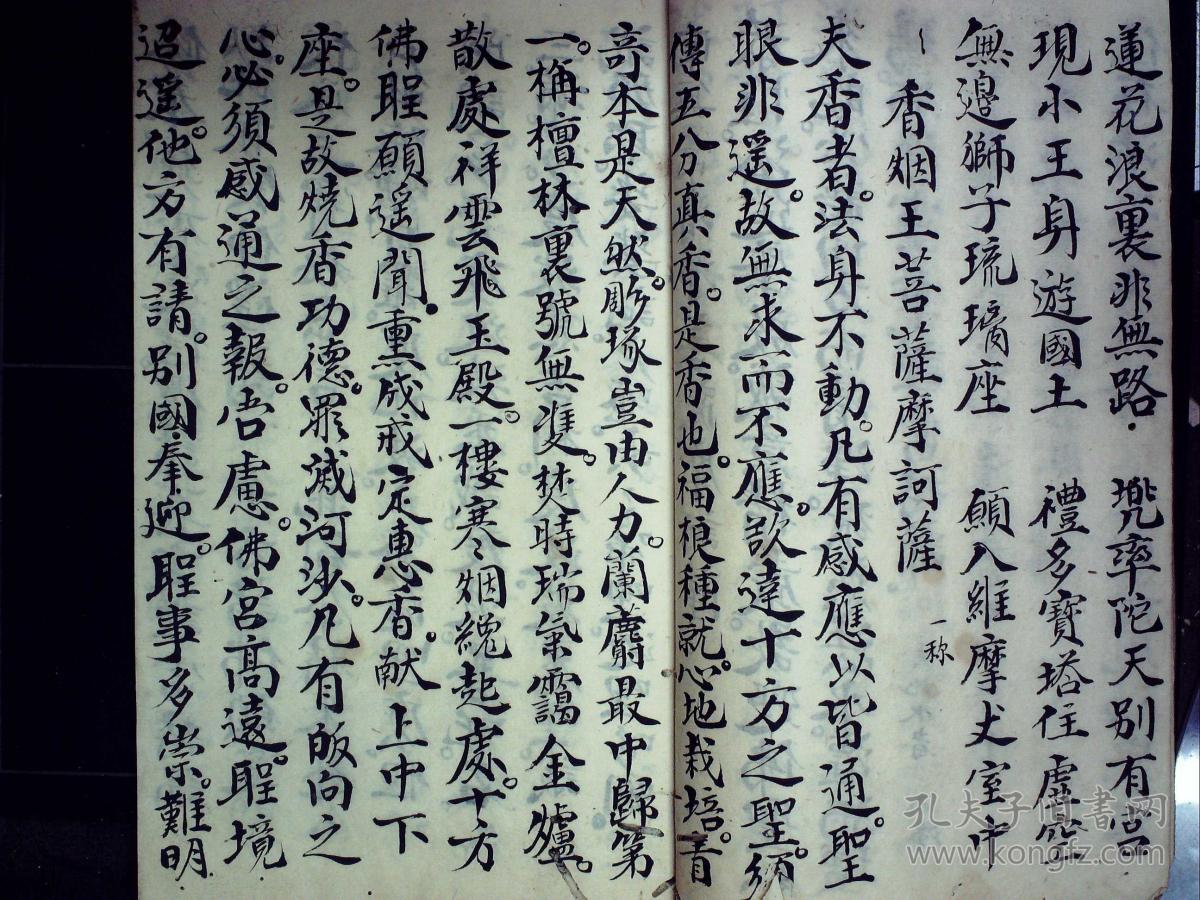 蓮花浪裏非無路 兠率陀天別有宮
現小王身遊國土 禮多寶塔住虛空
無邊獅子琉璃座 願入維摩丈室中
香烟王菩薩摩訶薩 一称
夫香者。法身不動。凡有感應以皆通。聖
眼非遥。故無求而不應。欲達十方之聖。須
傳五分真香。是香也。福根種就。心地栽培。音
奇本是天然。彫琢豈由人力。蘭麝最中歸第
一。栴檀林裏號無雙。焚時瑞氣靄金爐。
散處祥雲飛玉殿。一樓寒烟纔起處。十方
佛聖願遥聞。熏成戒定惠香。献上中下
座。是故燒香功德。罪滅河沙。凡有皈向之
心。必須感通之報。吾慮。佛宮高遠。聖境
迢遥。他方有請。別國奉迎。聖事多崇。難明
孔夫子舊書网
www.kongfz.com